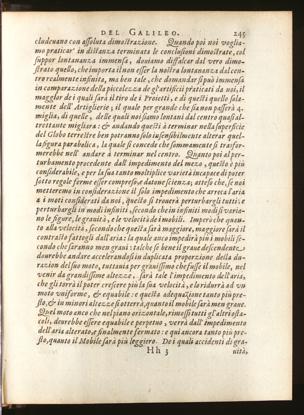 DEL GALILEO. 245
cludevano con assoluta dimostrazione. Quando poi noi voglia-
mo praticar' in distanza terminata le conclusioni dimostrate, col
suppor lontananza immensa, doviamo diffalcar dal vero dimo-
strato quello, che importa il non esser la nostra lontananza dal cen-
tro realmente infinita, ma ben tale, che domandar si può immensa
in comparazione della piccolezza de gl'artifizii praticati da noi, il
maggior de i quali sarà il tiro de i Proietti, e di questi quello sola-
mente dell'Artiglierie; il quale per grande che sia non passerà 4.
miglia, di quelle, delle quali noi siamo lontani dal centro quasi al-
trettante migliara: & andando questi à terminar nella superficie
del Globo terrestre ben potranno solo insensibilmente alterar quel-
la figura parabolica, la quale si concede che sommamente si trasfor-
merebbe nell' andare à terminar nel centro. Quanto poi al per-
turbamento procedente dall'impedimento del mezo, questo è più
considerabile, e per la sua tanto moltiplice varietà incapace di poter
sotto regole ferme esser compreso, e datone scienza; atteso che, se noi
metteremo in considerazione il solo impedimento che arreca l'aria
a i moti considerati da noi, questo si troverà perturbargli tutti, e
perturbargli in modi infiniti, secondo che in infiniti modi si varia-
no le figure, le gravità, e le velocità de i mobili. Imperò che quan-
to alla velocità, secondo che questa sarà maggiore, maggiore sarà il
contrasto fattogli dall'aria: la quale anco impedirà più i mobili se-
condo che saranno men gravi: talche se bene il grave descendente,
dovrebbe andare accelerandosi in duplicata proporzione della du-
razion del suo moto, tuttavia per gravissimo che fusse il mobile, nel
venir da grandissime altezze, sarà tale l'impedimento dell'aria,
che gli torrà il poter crescere più la sua velocità, e lo ridurrà ad un
moto uniforme, & equabile: e questa adequazione tanto più pre-
sto, & in minori altezze si otterrà, quanto il mobile sarà men grave.
Quel moto anco che nel piano orizontale, rimossi tutti gl'altri osta-
coli, dovrebbe essere equabile e perpetuo, verrà dall'impedimento
dell'aria alterato, e finalmente fermato: e qui ancora tanto più pre-
sto, quanto il Mobile sarà più leggiero. De i quali accidenti di gra-
Hh 3 vità,